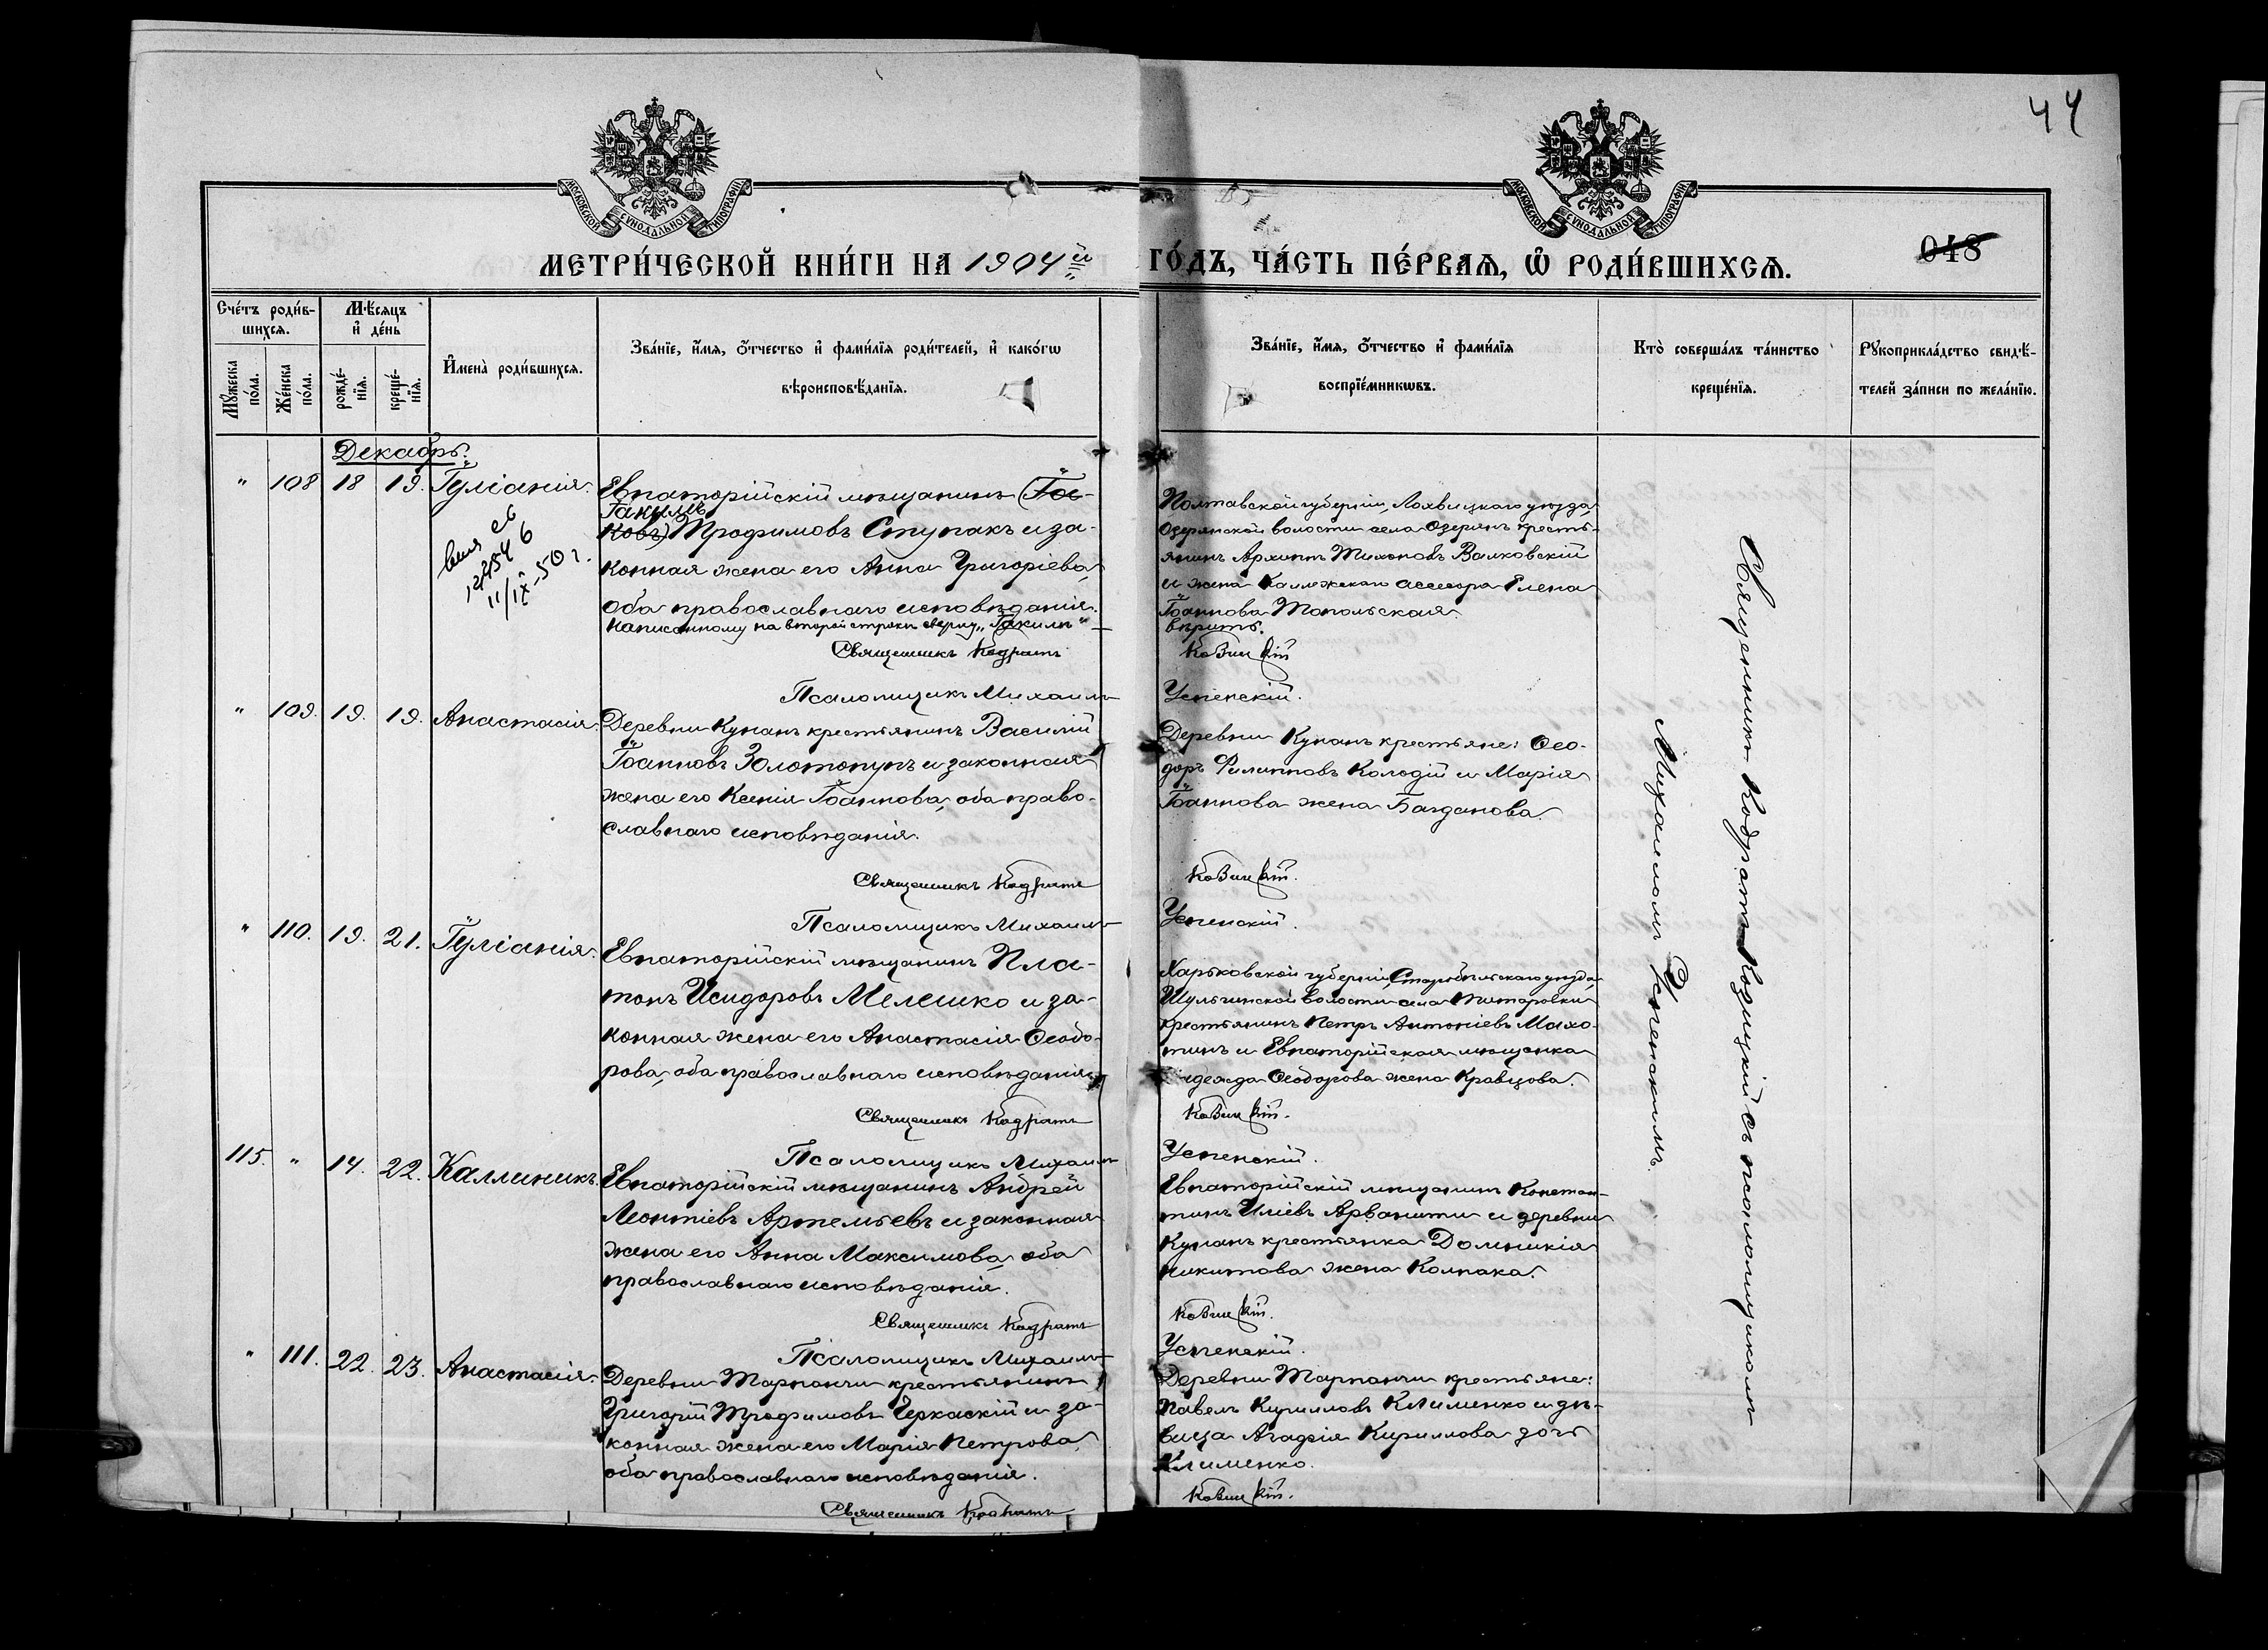 44
МОСКОВСКОЙ СѴНОДАЛЬНОЙ ТИПОГРАФІИ
МОСКОВСКОЙ СѴНОДАЛЬНОЙ ТИПОГРАФІИ
МЕТРИ́ЧЕСКОЙ КНИ́ГИ НА 1904 й
ГО́ДЪ, ЧА́СТЬ ПЕ́РВАѦ, Ѽ РОДИ́ВШИХСѦ.
048
Счéтъ роди́в-
шихсѧ.
Мꙋ́жеска по́ла.
Же́нска по́ла.
Мѣ́сѧцъ и҆ дéнь
рожде́-нїѧ.
креще́-нїѧ.
И҆мена̀ роди́вшихсѧ.
Звáнїе, и҆́мѧ, ѻ҆́тчество и҆ фами́лїѧ роди́телей, и҆ како́гѡ
вѣроисповѣ́данїѧ.
Звáнїе, и҆́мѧ, ѻ҆́тчество и҆ фами́лїѧ
воспрїе́мникѡвъ.
Кто̀ соверша́лъ та́инство
креще́нїѧ.
Рꙋкоприкла́дство свидѣ́-
телей за́писи по жела́нїю.
Декабрь.
" 108 18 19. Іуліанія.
Евпаторійскій мѣщанинъ (Іа-
Іакимъ
ковъ) Трофимовъ Ступакъ и за-
конная жена его Анна Григоріева,
оба православнаго исповѣданія.
Написанному на второй строкѣ сверху „Іакимъ"
Священникъ Кодратъ
Псаломщикъ Михаилъ
св
122546
11/IX-50 г.
Полтавской губерніи, Лохвицкаго уѣзда,
Озерянской волости села Озерянъ кресть-
янинъ Архипъ Тихоновъ Валковскій
и жена Коллежскаго ассесора Елена
Іоаннова Топольская.
вѣрить.
Успенскій.
" 109. 19. 19. Анастасія.
Деревни Кунанъ крестьянинъ Василій
Іоанновъ Золотопупъ и законная
жена его Ксенія Іоаннова, оба право-
славнаго исповѣданія.
Священникъ Кодратъ
Псаломщикъ Михаилъ
Деревни Кунанъ крестьяне: Ѳео-
доръ Филипповъ Колодій и Марія
Іоаннова жена Богданова.
Успенскій.
" 110. 19. 21. Іуліанія.
Евпаторійскій мѣщанинъ Пла-
тонъ Исидоровъ Мелешко и за-
конная жена его Анастасія Ѳеодо-
рова, оба православнаго исповѣданія.
Священникъ Кодратъ
Псаломщикъ Михаилъ
Харьковской губерніи, Старобѣльскаго уѣзда,
Шульгинской волости села
крестьянинъ Петръ Антоніевъ Махо-
тинъ и Евпаторійская мѣщанка
Ѳеодорова жена Кравцова.
Успенскій.
115. " 14. 22. Каллиникъ.
Евпаторійскій мѣщанинъ Андрей
Леонтіевъ Артемьевъ и законная
жена его Анна Максимова, оба
православнаго исповѣданія.
Священникъ Кодратъ
Псаломщикъ Михаилъ
Евпаторійскій мѣщанинъ Констан-
тинъ Иліевъ Арванити и деревни
Кунанъ крестьянка Домникія
Никитова жена Колпака.
Успенскій.
" 111. 22. 23. Анастасія.
Деревни Тарпанчи крестьянинъ
Григорій Трофимовъ Черкаскій и за-
конная жена его Марія Петрова,
оба православнаго исповѣданія.
Священникъ Кодратъ
Деревни Тарпанчи крестьяне:
Павелъ Кирилловъ Клименко и дѣ-
вица Агафія Кириллова дочь
Клименко.
Священникъ Кодратъ съ псаломщикомъ
Михаиломъ Успенскимъ.